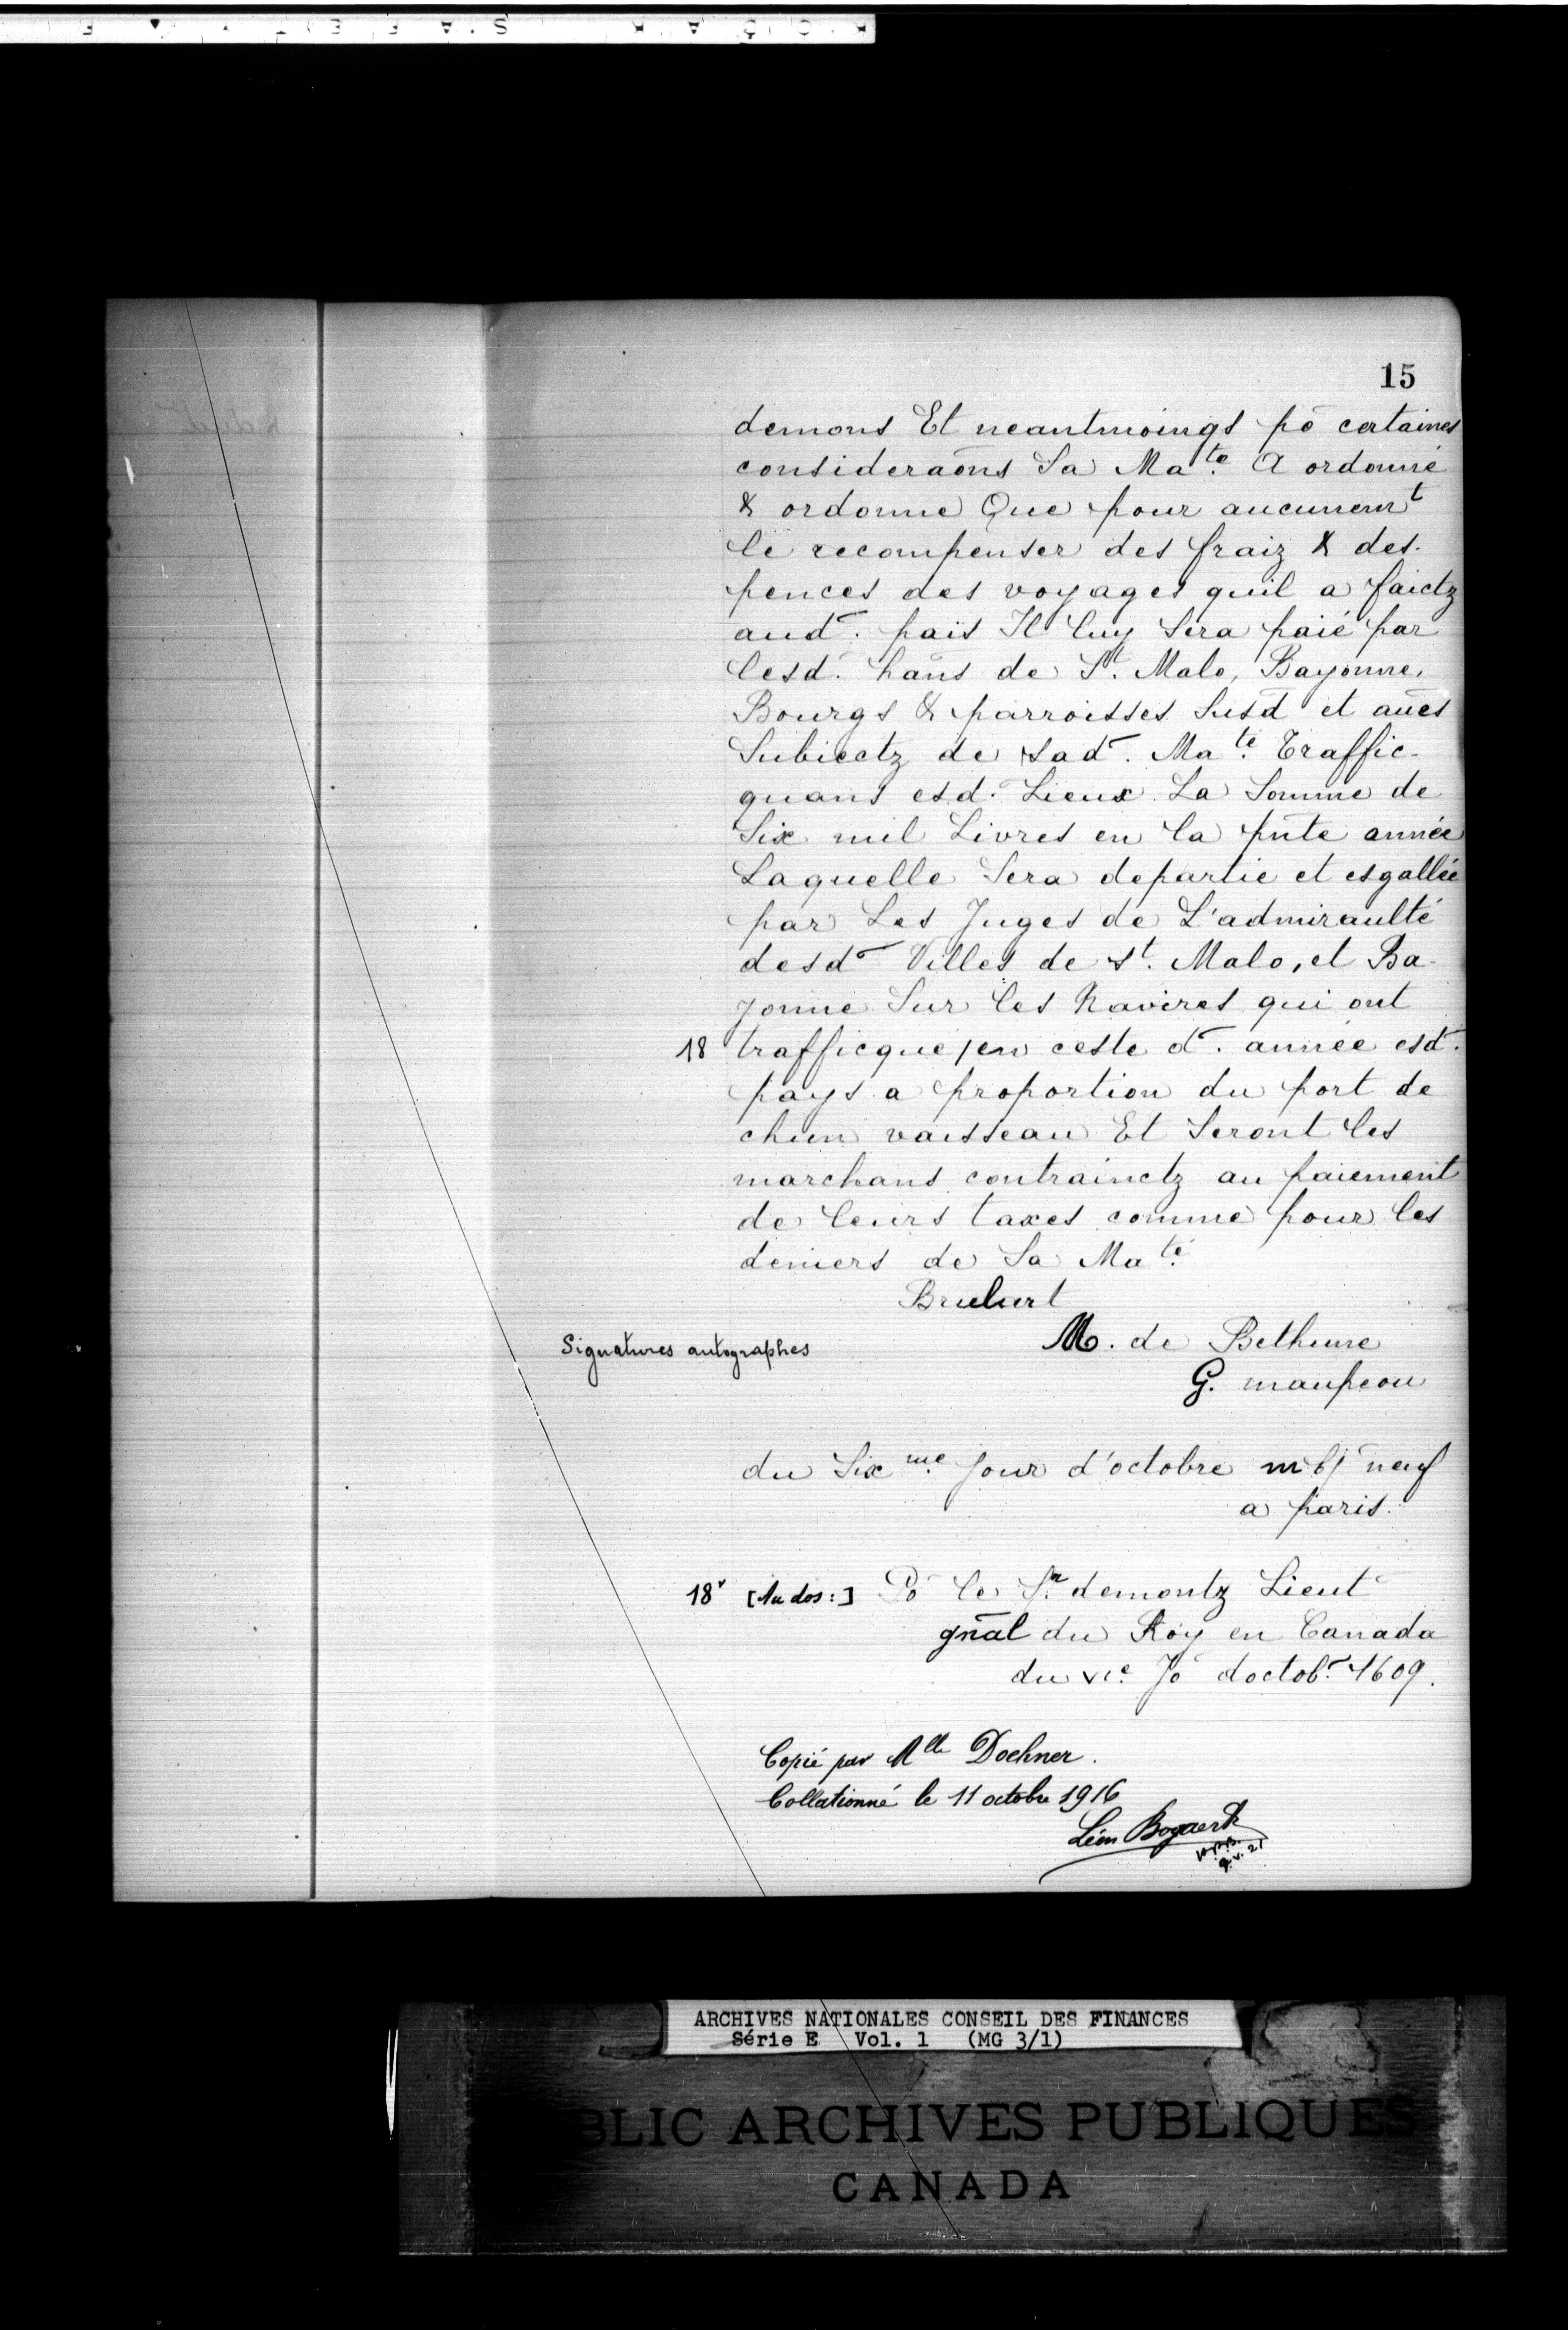 15
demons Et neantmoings põ certaines
consideraõns Sa Ma.te A ordonné
& ordonne Que pour aucunemt
le recompenser des fraiz & des-
pences des voyages quil a faictz
aud. païs Il luy Sera paié par
lesd. hãns de St. Malo, Bayonne,
Bourgs & parroisses Susd et aũes
Subiectz de sad. Ma.té Traffic-
quans esd. Lieux. La Somme de
Six mil Livres en la pñte année
Laquelle Sera departie et esgallée
par Les Juges de L'admiraulté
desd Villes de St. Malo, et Ba-
yonne Sur les Navires qui ont
18 trafficque/en ceste d. année esd.
pays a proportion du port de
chũn vaisseau Et Seront les
marchans contrainctz au paiement
de leurs taxes comme pour les
deniers de Sa Ma.té
Brulart
Signatures autographes M. de Bethune
G. maupeou
du Six me Jour d'octobre m vj neuf
a paris.
18v [Au dos:] Põ le Sr. demontz Lieut
gñal du Roy en Canada
du vie. Jõ doctob. 1609.
Copié par Mlle Doehner.
Collationné le 11 octobre 1916
Léon Bogaert
9.v.21
ARCHIVES NATIONALES CONSEIL DES FINANCES
Série E Vol. 1 (MG 3/1)
BLIC ARCHIVES PUBLIQUES
CANADA